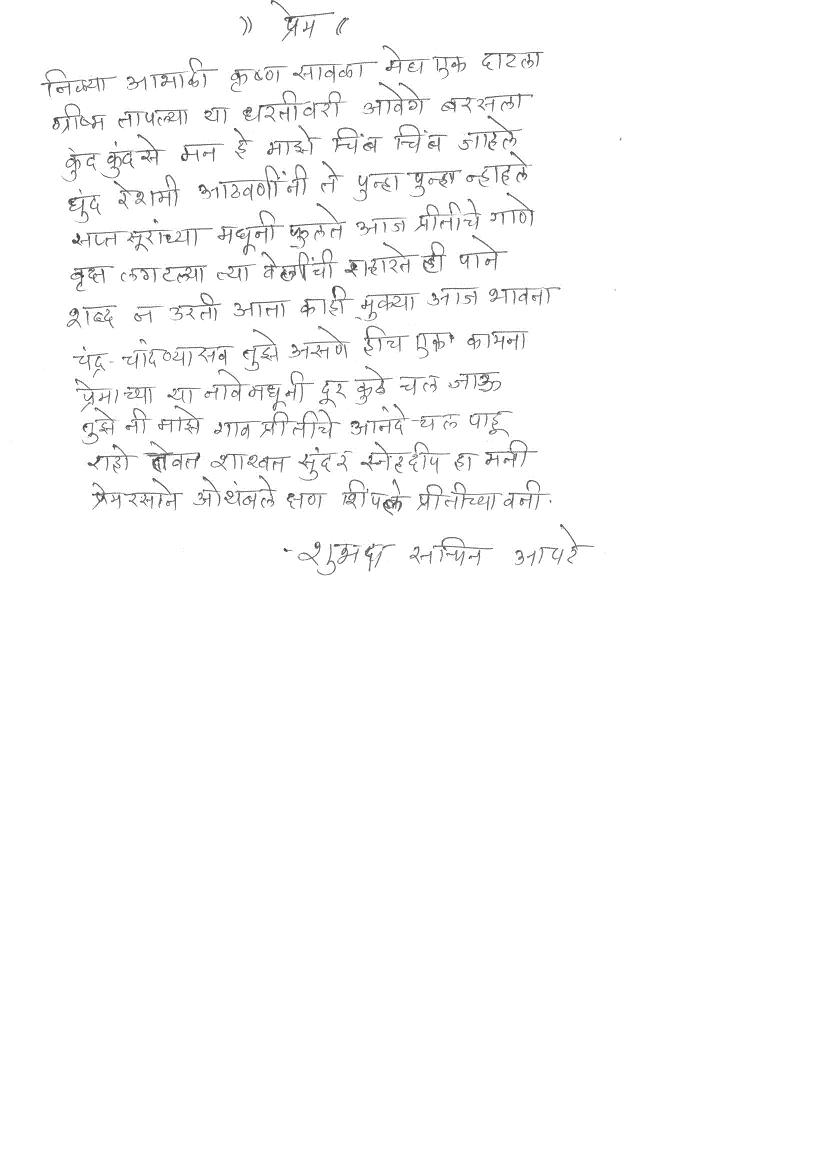 ॥ प्रेम ॥
निळ्या आभाळी कृष्ण सावळा मेघ एक दाटला
ग्रीष्म तापल्या या धरतीवरी आवेगे बरसला
कुंद कुंदसे मन हे माझे चिंब चिंब जाहले
धुंद रेशमी आठवणींनी ते पुन्हा पुन्हा न्हाहले
सप्त सूरांच्या मधूनी फुलते आज प्रीतीचे गाणे
वृक्ष लगटल्या त्या वेलींची शहारते ही पाने
शब्द न उरती आता काही मुक्या आज भावना
चंद्र-चांदण्यासव तुझे असणे हीच एक कामना
प्रेमाच्या या नावेमधूनी दूर कुठे चल जाऊ
तुझे नी माझे गाव प्रीतीचे आनंदे चल पाहू
राहो तेवत शाश्वत सुंदर स्नेहदीप हा मनी
प्रेमरसाने ओथंबले क्षण शिंपले प्रीतीच्या वनी.
- शुभदा सचिन आपटे